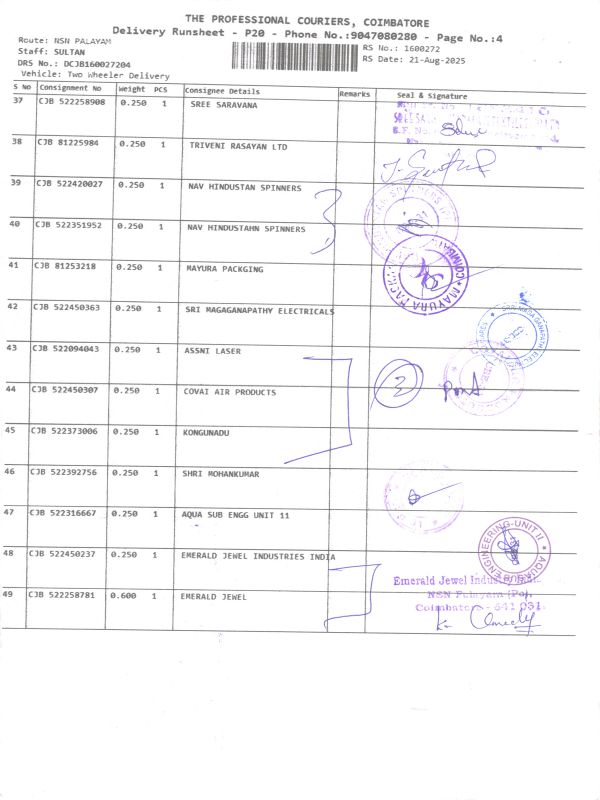 THE PROFESSIONAL COURIERS, COIMBATORE
Delivery Runsheet - P20 - Phone No.:9047080280 - Page No.:4
Route: NSN PALAYAM
RS No: 1600272
Staff: SULTAN
RS Date: 21-Aug-2025
DRS No.: DCJB160027204
Vehicle: Two Wheeler Delivery
S No Consignment No Weight PCS Consignee Details Remarks Seal & Signature
37 CJB 522258908 0.250 1 SREE SARAVANA
38 CJB 81225984 0.250 1 TRIVENI RASAYAN LTD
39 CJB 522420027 0.250 1 NAV HINDUSTAN SPINNERS
40 CJB 522351952 0.250 1 NAV HINDUSTAHN SPINNERS
41 CJB 81253218 0.250 1 MAYURA PACKGING
MAYURA PACK
42 CJB 522450363 0.250 1 SRI MAGAGANAPATHY ELECTRICALS
43 CJB 522094043 0.250 1 ASSNI LASER
44 CJB 522450307 0.250 1 COVAI AIR PRODUCTS
3
45 CJB 522373006 0.250 1 KONGUNADU
46 CJB 522392756 0.250 1 SHRI MOHANKUMAR
47 CJB 522316667 0.250 1 AQUA SUB ENGG UNIT 11
AQUASUB ENGINEERING-UNIT II
48 CJB 522450237 0.250 1 EMERALD JEWEL INDUSTRIES INDIA
49 CJB 522258781 0.600 1 EMERALD JEWEL
Emerald Jewel
NSN Palayam (Po),
Coimbatore - 641 031.